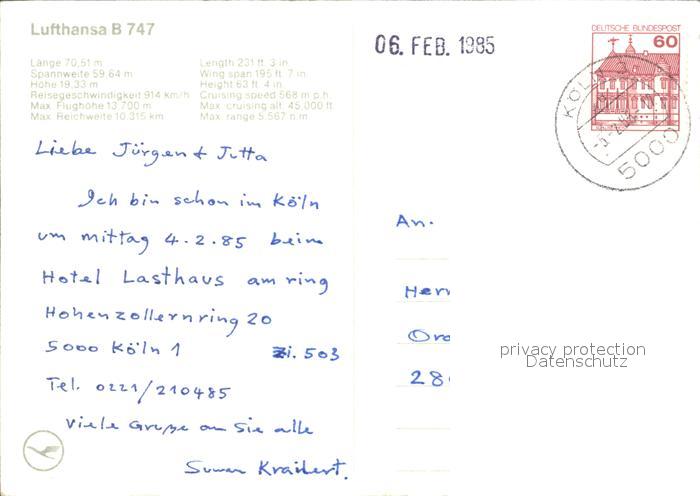 Lufthansa B 747
Länge 70,51 m
Spannweite 59,64 m
Höhe 19,33 m
Reisegeschwindigkeit 914 km/h
Max. Flughöhe 13.700 m
Max. Reichweite 10.315 km
Length 231 ft. 3 in.
Wing span 195 ft. 7 in.
Height 63 ft. 4 in.
Cruising speed 568 m.p.h.
Max. cruising alt. 45,000 ft.
Max. range 5.567 n.m
06. FEB. 1985
DEUTSCHE BUNDESPOST
60
KÖLN 3
5000
Liebe Jürgen & Jutta
Ich bin schon im Köln
um mittag 4.2.85 beim
Hotel Lasthaus am ring
Hohenzollernring 20
5000 Köln 1 Zi. 503
Tel. 0221/210485
viele Grüße an Sie alle
An.
Herr
28
privacy protection
Datenschutz